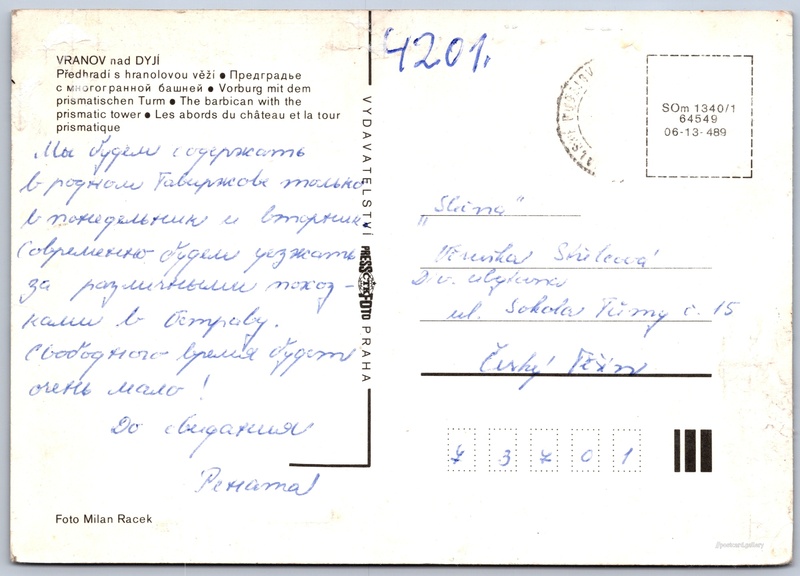 VRANOV nad DYJÍ
Předhradí s hranolovou věží ● Предградье
с многогранной башней ● Vorburg mit dem
prismatischen Turm ● The barbican with the
prismatic tower ● Les abords du château et la tour
prismatique
Мы будем содержать
в родном Гавиржове только
в понедельник и вторник.
Современно будем уезжать
за различными поход-
ками в Остраву.
Свободного время будет
очень мало!
До свидания
Рената
Foto Milan Racek
VYDAVATELSTVÍ PRESSFOTO PRAHA
ČTK
4201.
SOm 1340/1
64549
06-13-489
„Sluna"
Střelcová
ul. Sokola Tůmy č. 15
Český Těšín
73701